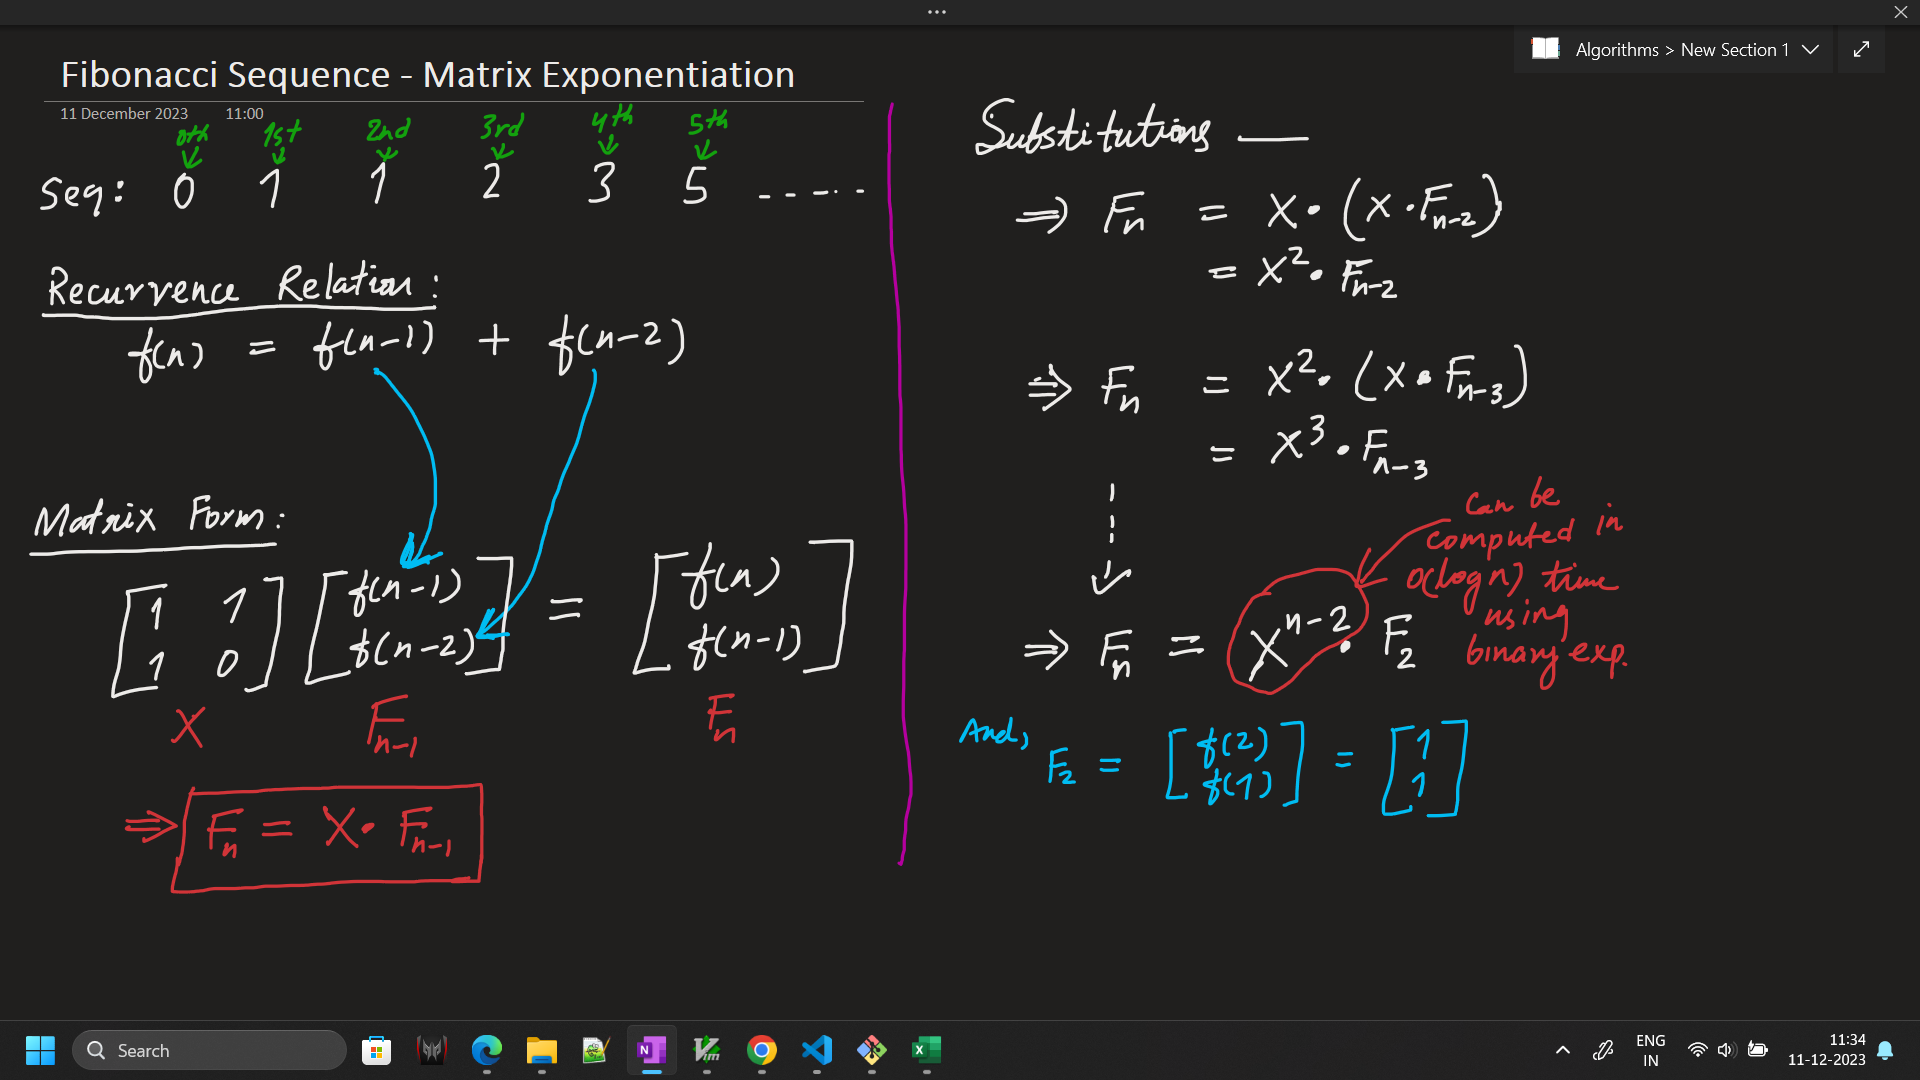 Algorithms > New Section 1
Fibonacci Sequence - Matrix Exponentiation
11 December 2023 11:00
0th 1st 2nd 3rd 4th 5th
Seq: 0 1 1 2 3 5 -----
Recurrence Relation:
f(n) = f(n-1) + f(n-2)
Matrix Form:
[1 1] [f(n-1)] = [f(n)]
[1 0] [f(n-2)] [f(n-1)]
X F_{n-1} F_n
⇒ F_n = X · F_{n-1}
Substitutions —
⇒ F_n = X · (X · F_{n-2})
= X² · F_{n-2}
⇒ F_n = X² · (X · F_{n-3})
= X³ · F_{n-3}
can be
computed in
O(log n) time
using
binary exp.
⇒ F_n = X^{n-2} · F_2
And,
F_2 = [f(2)] = [1]
[f(1)] [1]
Search
N
Vim
X
ENG
IN
11:34
11-12-2023